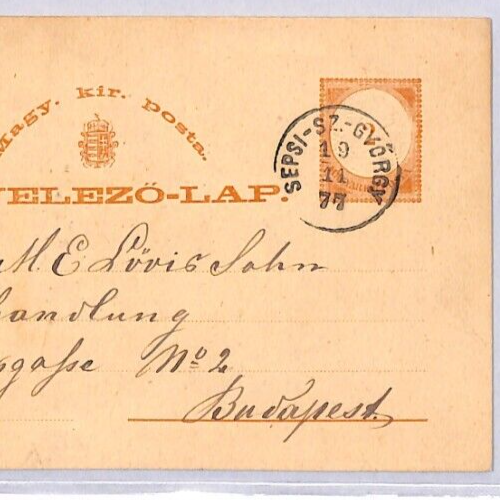 Magy. kir. posta.
VELEZŐ-LAP.
SEPSI-SZ.-GYÖRGY
19
11
77
2
M. E. Lövis Sohn
handlung
gaſse Nº 2
Budapest.